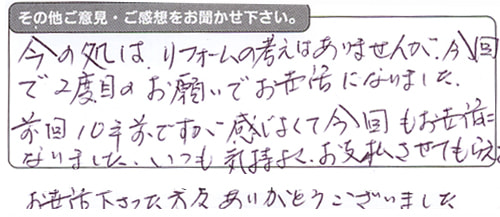 その他ご意見・ご感想をお聞かせ下さい。
今の処は、リフォームの考えはありませんが、今回
で2度目のお願いでお世話になりました。
前回10年前ですが感じよくて今回もお世話に
なりました、いつも気持よく、お支払させてもらえ
お世話下さった方々ありがとうございました